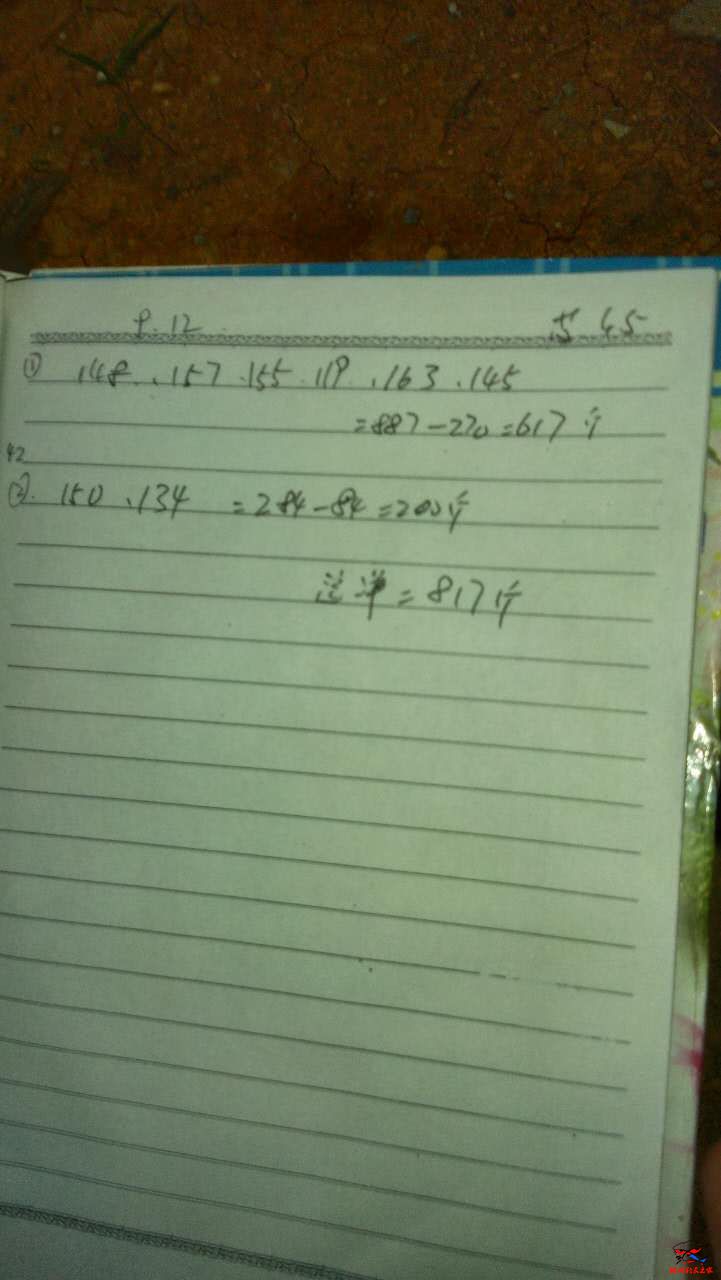 9.12 45
① 148、157、155、119、163、145
=887-270=617斤
42
②、150、134 =284-84=200斤
净=817斤